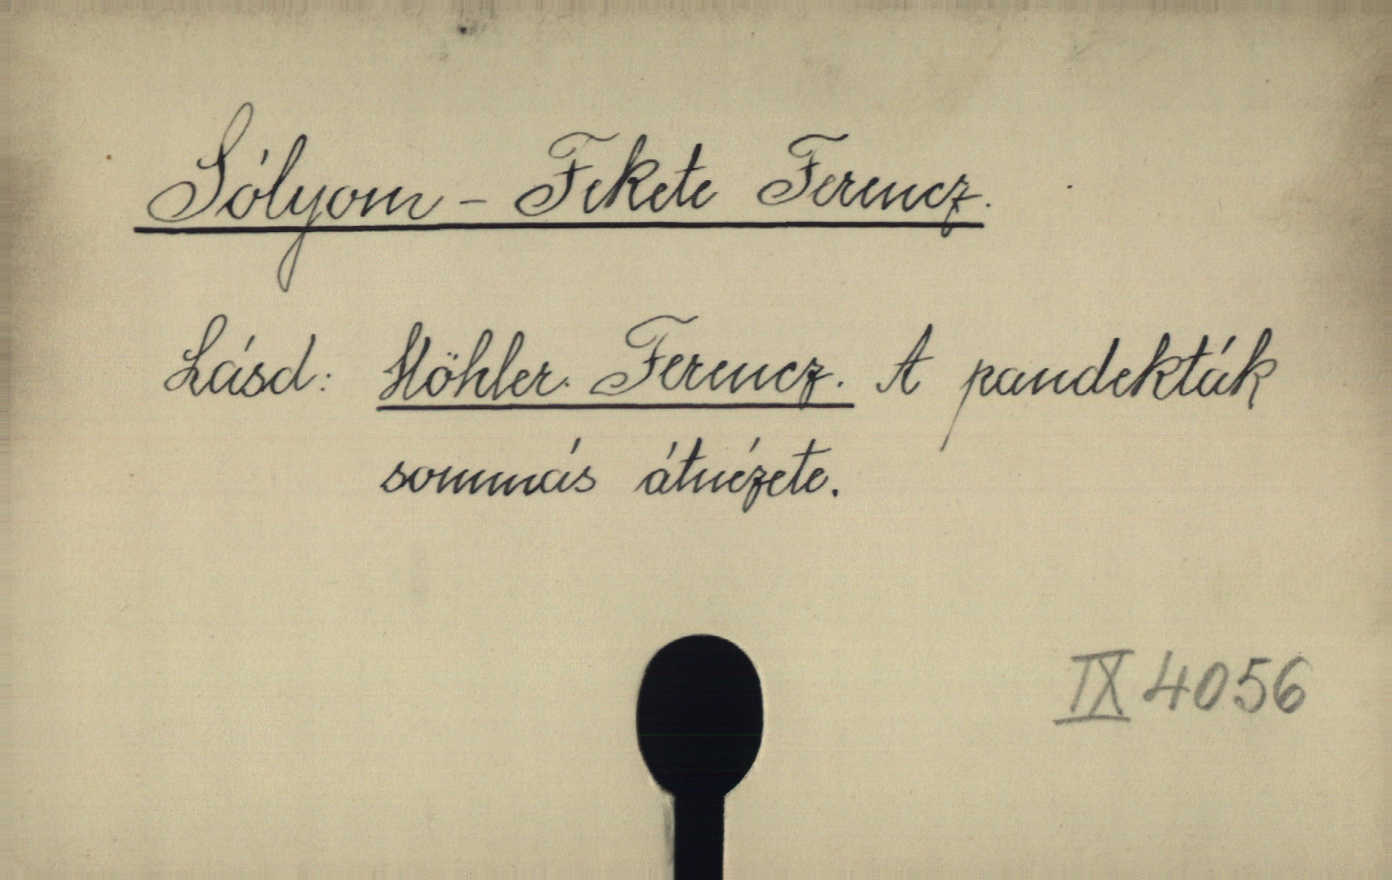 Sólyom - Fekete Ferencz.
Lásd: Köhler Ferencz. A pandekták
sommás átnézete.
IX 4056